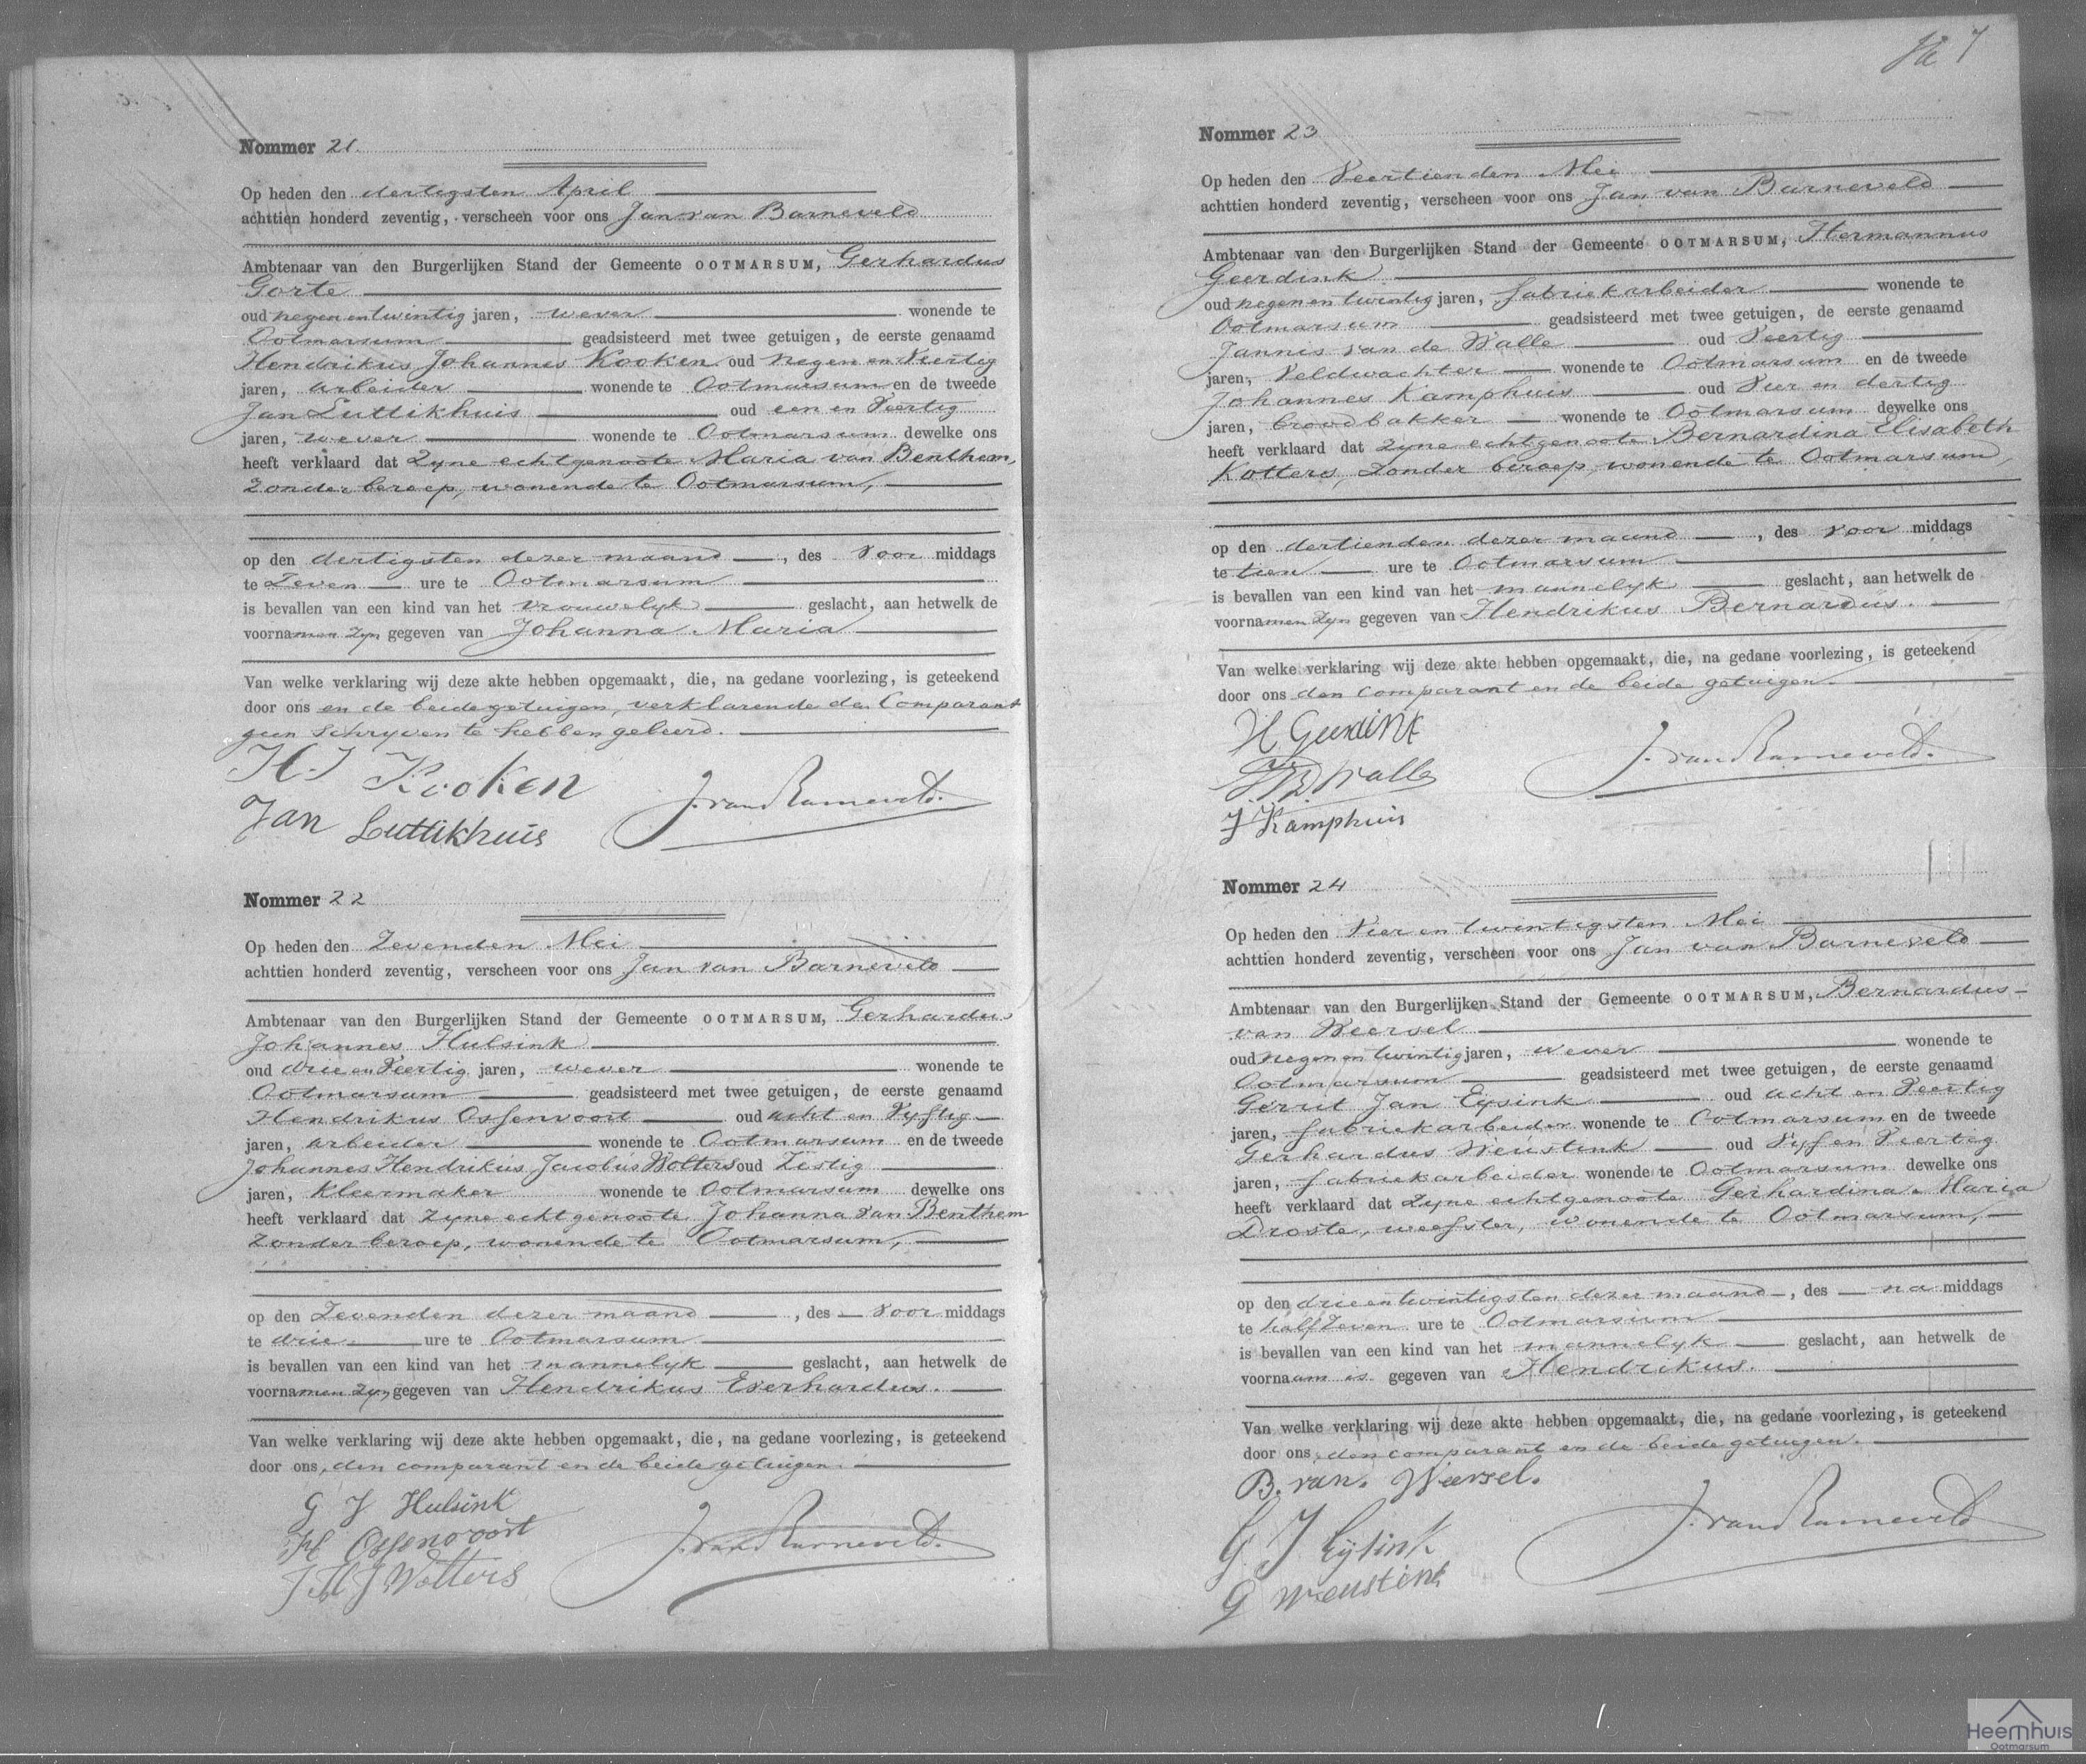 Nommer 21.
Op heden den dertigsten April
achttien honderd zeventig, verscheen voor ons Jan van Barneveld
Ambtenaar van den Burgerlijken Stand der Gemeente OOTMARSUM, Gerhardus
Gorte
oud negen en twintig jaren, wever wonende te
Ootmarsum geadsisteerd met twee getuigen, de eerste genaamd
Hendrikus Johannes Kooken oud negen en Veertig
jaren, arbeider wonende te Ootmarsum en de tweede
Jan Luttikhuis oud een en Veertig
jaren, wever wonende te Ootmarsum dewelke ons
heeft verklaard dat Zyne echtgenoote Maria van Benthem,
Zonder beroep, wonende te Ootmarsum,
op den dertigsten dezer maand, des Voor middags
te Zeven ure te Ootmarsum
is bevallen van een kind van het vrouwelyk geslacht, aan hetwelk de
voornamen zyn gegeven van Johanna Maria
Van welke verklaring wij deze akte hebben opgemaakt, die, na gedane voorlezing, is geteekend
door ons en de beide getuigen, verklarende de Comparant
geen Schryven te hebben geleerd.
H.J Kooken
J. van Barneveld.
Jan Luttikhuis
Nommer 22
Op heden den Zevenden Mei
achttien honderd zeventig, verscheen voor ons Jan van Barneveld
Ambtenaar van den Burgerlijken Stand der Gemeente OOTMARSUM, Gerhardus
Johannes Hulsink
oud drie en Veertig jaren, wever wonende te
Ootmarsum geadsisteerd met twee getuigen, de eerste genaamd
Hendrikus Ossenvoort oud acht en Vyftig
jaren, arbeider wonende te Ootmarsum en de tweede
Johannes Hendrikus Jacobus Wolters oud Zestig
jaren, Kleermaker wonende te Ootmarsum dewelke ons
heeft verklaard dat Zyne echtgenoote Johanna van Benthem
Zonder beroep, wonende te Ootmarsum,
op den Zevenden dezer maand, des Voor middags
te drie ure te Ootmarsum
is bevallen van een kind van het mannelyk geslacht, aan hetwelk de
voornamen zyn gegeven van Hendrikus Everhardus.
Van welke verklaring wij deze akte hebben opgemaakt, die, na gedane voorlezing, is geteekend
door ons, den comparant en de beide getuigen.
G J Hulsink
H Ossenvoort
J. van Barneveld.
J H J Wolters
7
Nommer 23
Op heden den Veertienden Mei
achttien honderd zeventig, verscheen voor ons Jan van Barneveld
Ambtenaar van den Burgerlijken Stand der Gemeente OOTMARSUM, Hermannus
Geerdink
oud negen en twintig jaren, fabriekarbeider wonende te
Ootmarsum geadsisteerd met twee getuigen, de eerste genaamd
Jannis van de Walle oud Veertig
jaren, Veldwachter wonende te Ootmarsum en de tweede
Johannes Kamphuis oud Vier en dertig
jaren, broodbakker wonende te Ootmarsum dewelke ons
heeft verklaard dat zyne echtgenoote Bernardina Elisabeth
Kotters, Zonder beroep, wonende te Ootmarsum,
op den dertienden dezer maand, des Voor middags
te tien ure te Ootmarsum
is bevallen van een kind van het mannelyk geslacht, aan hetwelk de
voornamen zyn gegeven van Hendrikus Bernardus.
Van welke verklaring wij deze akte hebben opgemaakt, die, na gedane voorlezing, is geteekend
door ons den comparant en de beide getuigen.
H Geerdink
J. van Barneveld.
Walle
J Kamphuis
Nommer 24
Op heden den Vier en twintigsten Mei
achttien honderd zeventig, verscheen voor ons Jan van Barneveld
Ambtenaar van den Burgerlijken Stand der Gemeente OOTMARSUM, Bernardus
van Weersel
oud negen en twintig jaren, wever wonende te
Ootmarsum geadsisteerd met twee getuigen, de eerste genaamd
Gerrit Jan Eysink oud acht en Veertig
jaren, fabriekarbeider wonende te Ootmarsum en de tweede
Gerhardus Weustink oud Vyf en Veertig
jaren, fabriekarbeider wonende te Ootmarsum dewelke ons
heeft verklaard dat Zyne echtgenoote Gerhardina Maria
Droste, weefster, wonende te Ootmarsum,
op den drie en twintigsten dezer maand, des na middags
te half Zeven ure te Ootmarsum
is bevallen van een kind van het mannelyk geslacht, aan hetwelk de
voornaam is gegeven van Hendrikus.
Van welke verklaring wij deze akte hebben opgemaakt, die, na gedane voorlezing, is geteekend
door ons, den comparant en de beide getuigen.
B. van Weersel.
J. van Barneveld
G J Eijsink
G Weustink
Heemhuis
Ootmarsum